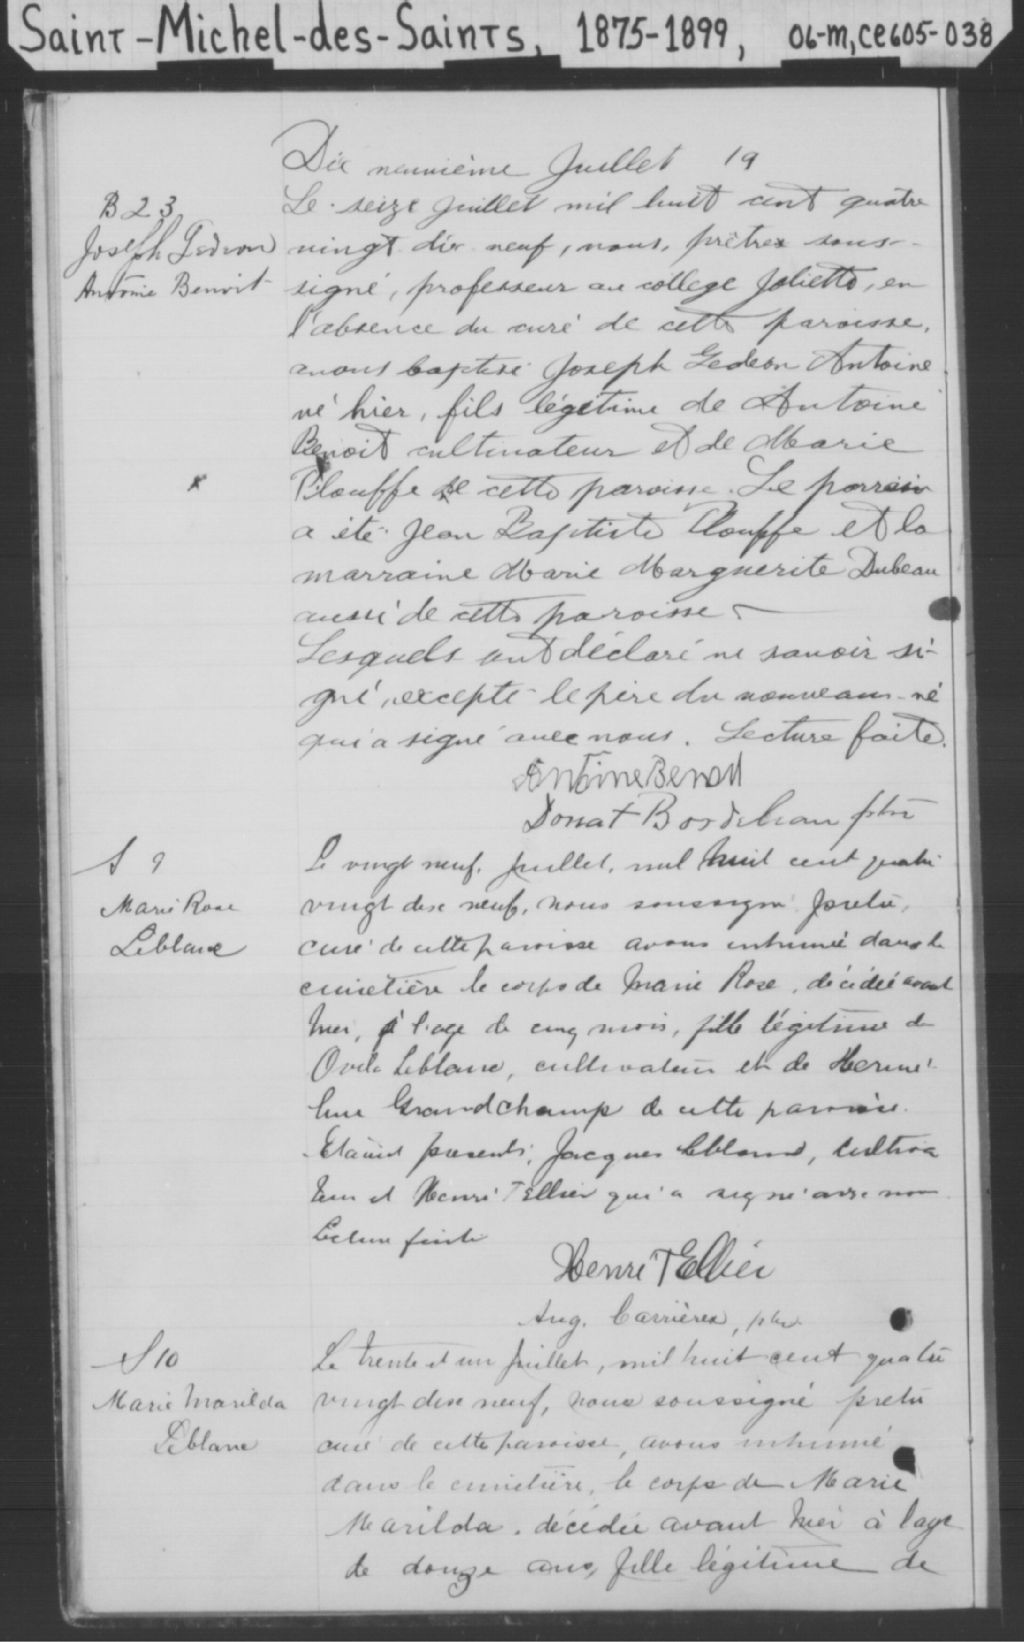 Saint-Michel-des-Saints, 1875-1899, 06-m, ce605-038
Dix neuvième Juillet 19
B 23
Joseph Gedeon
Antoine Benoit
Le seize juillet mil huit cent quatre
vingt dix neuf, nous, prêtre sous-
signé, professeur au college Joliette, en
l'absence du curé de cette paroisse,
avons baptisé Joseph Gedeon Antoine
né hier, fils légitime de Antoine
Benoit cultivateur et de Marie
Plouffe de cette paroisse. Le parrain
a été Jean Baptiste Plouffe et la
marraine Marie Marguerite Dubeau
aussi de cette paroisse
Lesquels ont déclaré ne savoir si-
gné, excepté le père du nouveau-né
qui a signé avec nous. Lecture faite.
Antoine Benoit
Donat Bordeleau ptre
S 9
Marie Rose
Leblanc
Le vingt neuf juillet, mil huit cent quatre
vingt dix neuf, nous soussigné pretre,
curé de cette paroisse avons inhumé dans le
cimetière le corps de Marie Rose, décédée avant
hier, à l'age de cinq mois, fille légitime de
Ovila Leblanc, cultivateur et de Hermé-
line Grandchamp de cette paroisse.
Etaient presents, Jacques Leblanc, cultiva
teur et Henri Tellier qui a signé avec nous
Lecture faite
Henri Tellier
Aug. Carrières, ptre
S 10
Marie Marilda
Leblanc
Le trente et un juillet, mil huit cent quatre
vingt dix neuf, nous soussigné pretre
curé de cette paroisse, avons inhumé
dans le cimetière, le corps de Marie
Marilda, décédée avant hier à l'age
de douze ans, fille légitime de